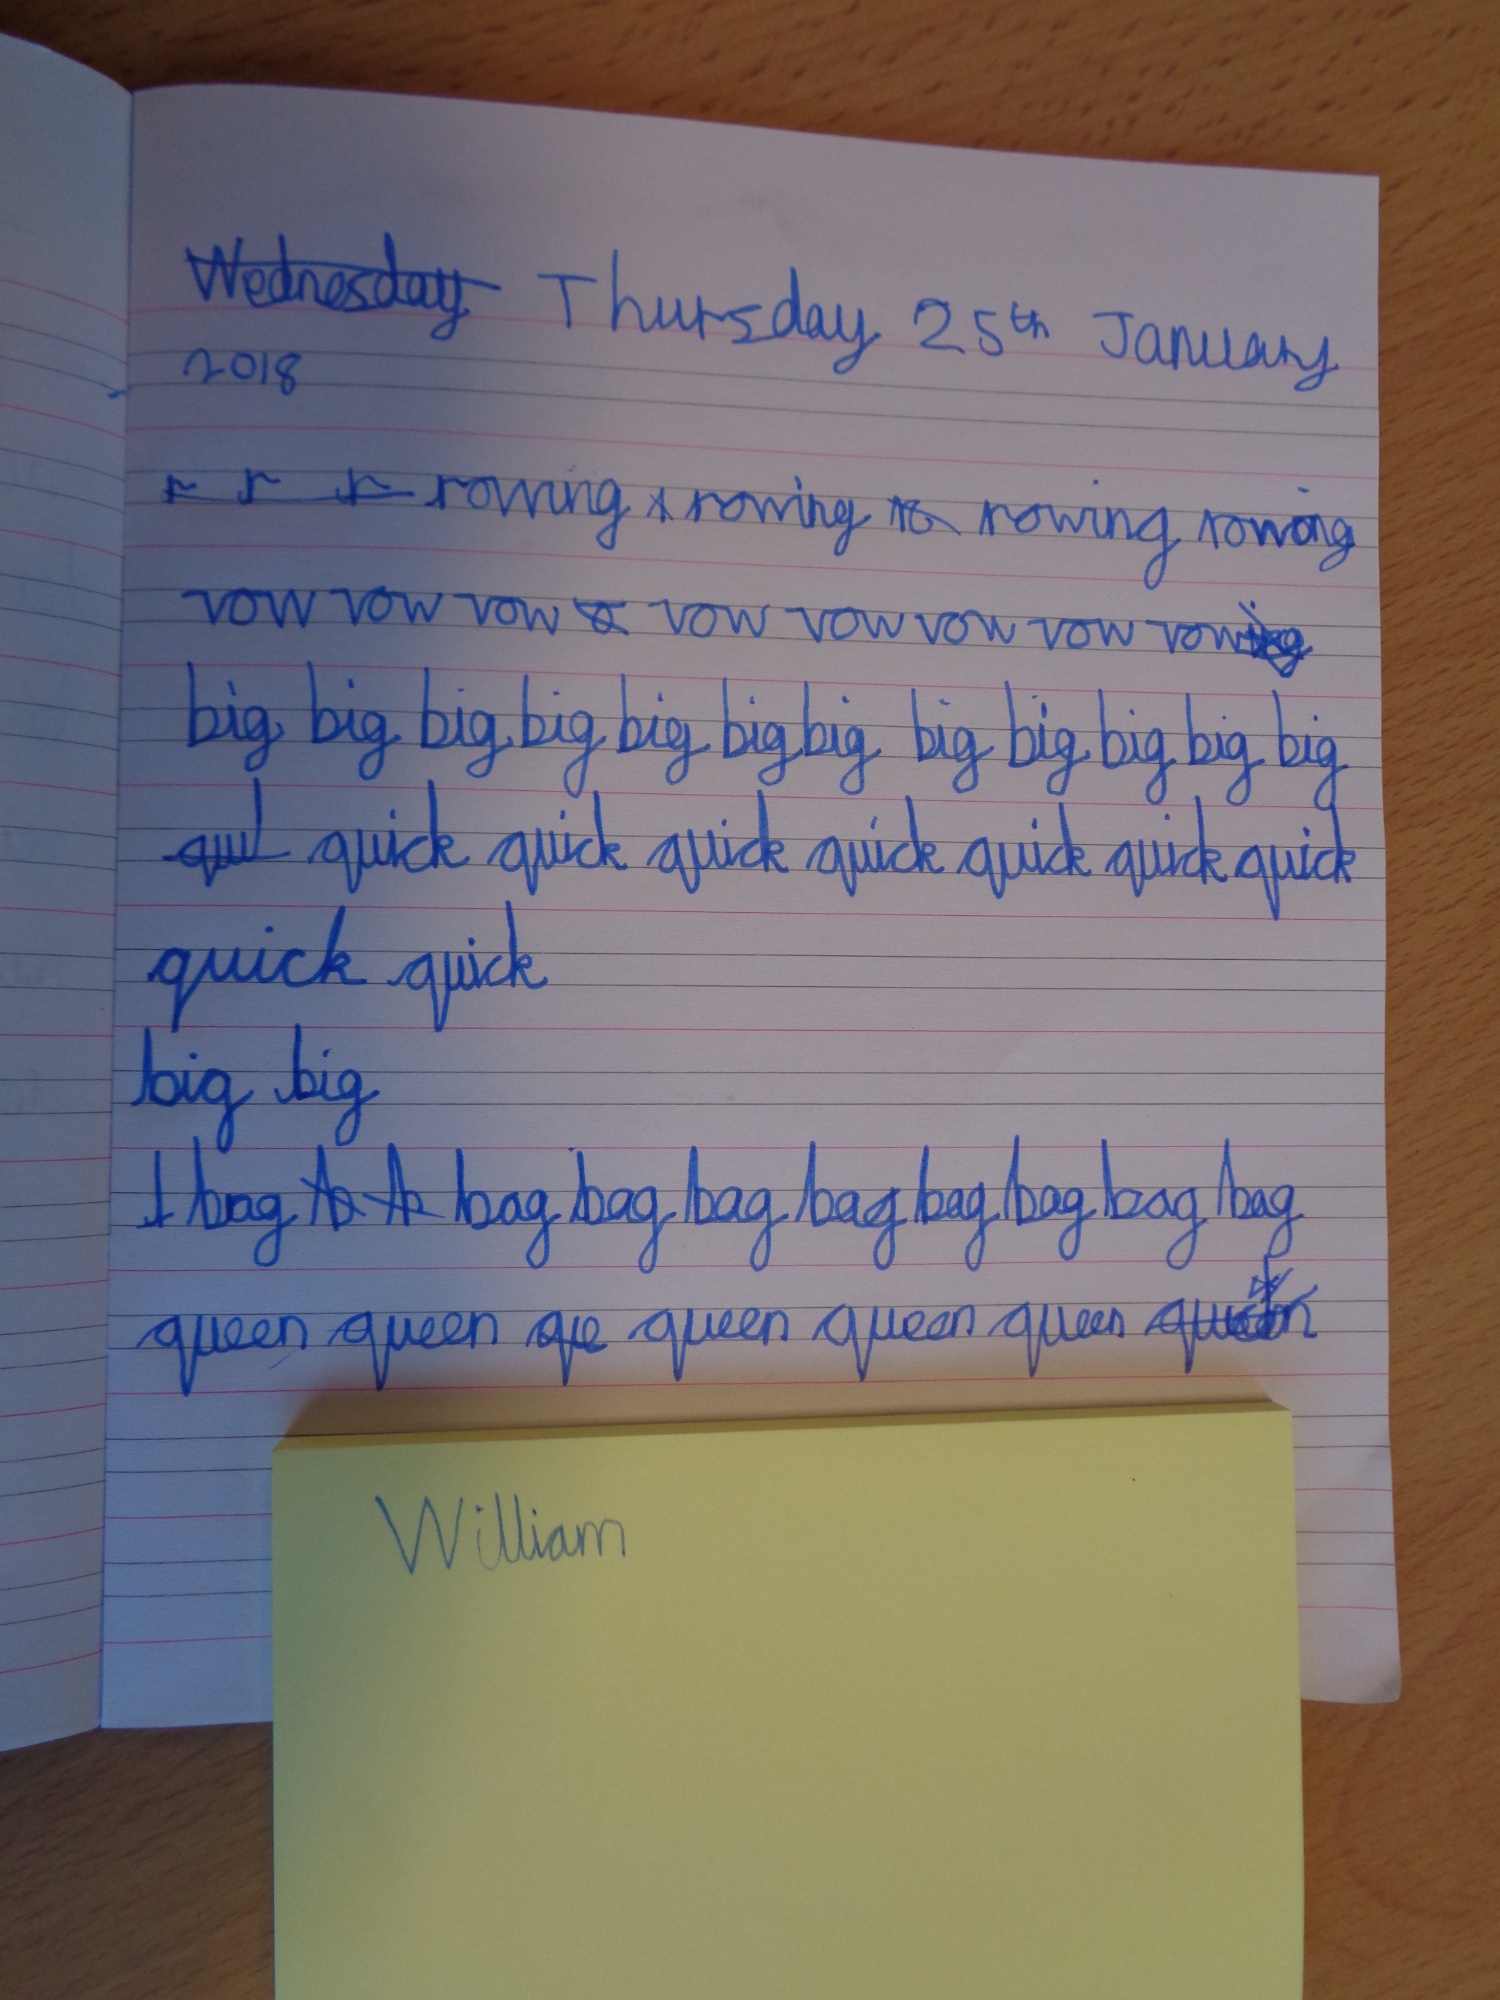 Wednesday Thursday 25th January
2018
r r r rowing rowing rowing rowing
row row row row row row row row
big big big big big big big big big big big big
qui quick quick quick quick quick quick quick
quick quick
big big
bag bag bag bag bag bag bag bag bag
queen queen que queen queen queen
William